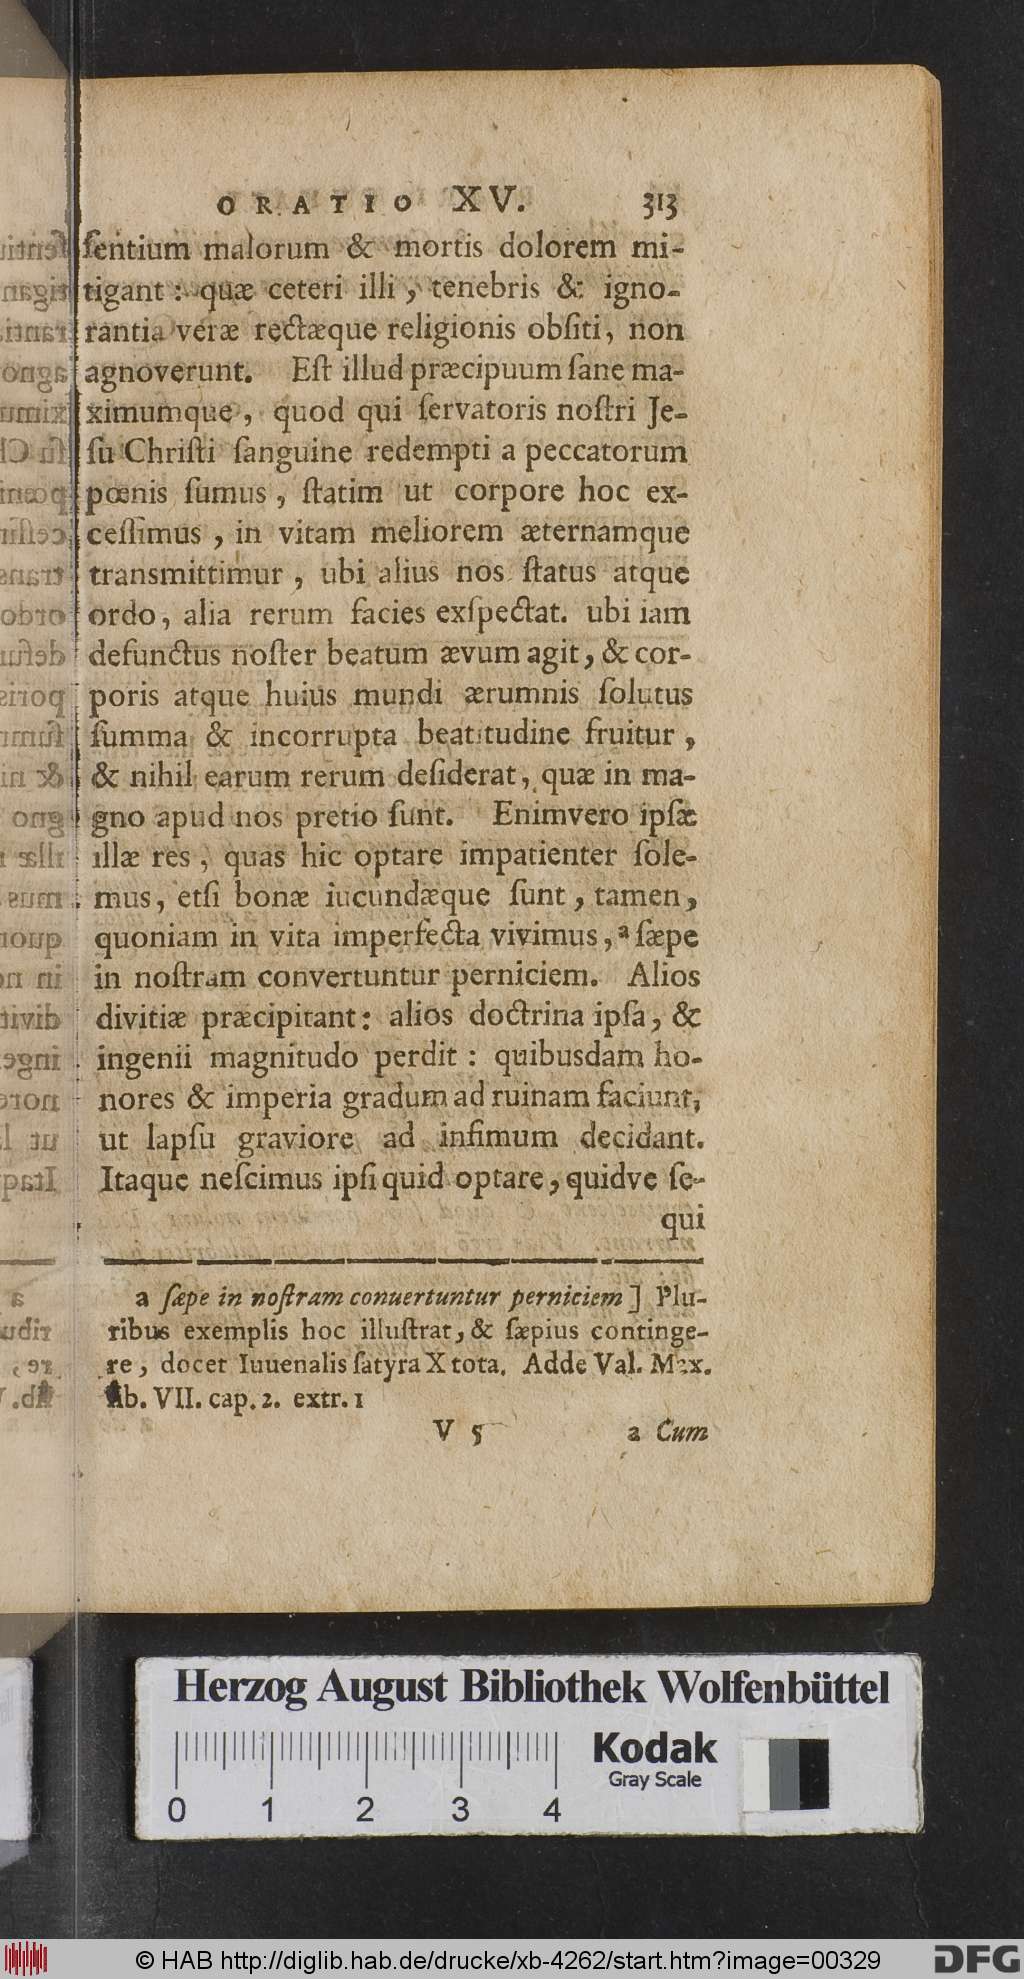 ORATIO XV. 313
ſentium malorum & mortis dolorem mi-
tigant: quæ ceteri illi, tenebris & igno-
rantia veræ rectæque religionis obſiti, non
agnoverunt. Eſt illud præcipuum ſane ma-
ximumque, quod qui ſervatoris noſtri Je-
ſu Chriſti ſanguine redempti a peccatorum
pœnis ſumus, ſtatim ut corpore hoc ex-
ceſſimus, in vitam meliorem æternamque
transmittimur, ubi alius nos ſtatus atque
ordo, alia rerum facies exſpectat. ubi iam
defunctus noſter beatum ævum agit, & cor-
poris atque huius mundi ærumnis ſolutus
ſumma & incorrupta beatitudine fruitur,
& nihil earum rerum deſiderat, quæ in ma-
gno apud nos pretio ſunt. Enimvero ipſæ
illæ res, quas hic optare impatienter ſole-
mus, etſi bonæ iucundæque ſunt, tamen,
quoniam in vita imperfecta vivimus, a ſæpe
in noſtram convertuntur perniciem. Alios
divitiæ præcipitant: alios doctrina ipſa, &
ingenii magnitudo perdit: quibusdam ho-
nores & imperia gradum ad ruinam faciunt,
ut lapſu graviore ad infimum decidant.
Itaque neſcimus ipſi quid optare, quidve ſe-
qui
a ſæpe in noſtram conuertuntur perniciem] Plu-
ribus exemplis hoc illuſtrat, & ſæpius continge-
re, docet Iuuenalis ſatyra X tota. Adde Val. Max.
lib. VII. cap. 2. extr. 1
V 5 a Cum
Herzog August Bibliothek Wolfenbüttel
Kodak
Gray Scale
0 1 2 3 4
© HAB http://diglib.hab.de/drucke/xb-4262/start.htm?image=00329
DFG